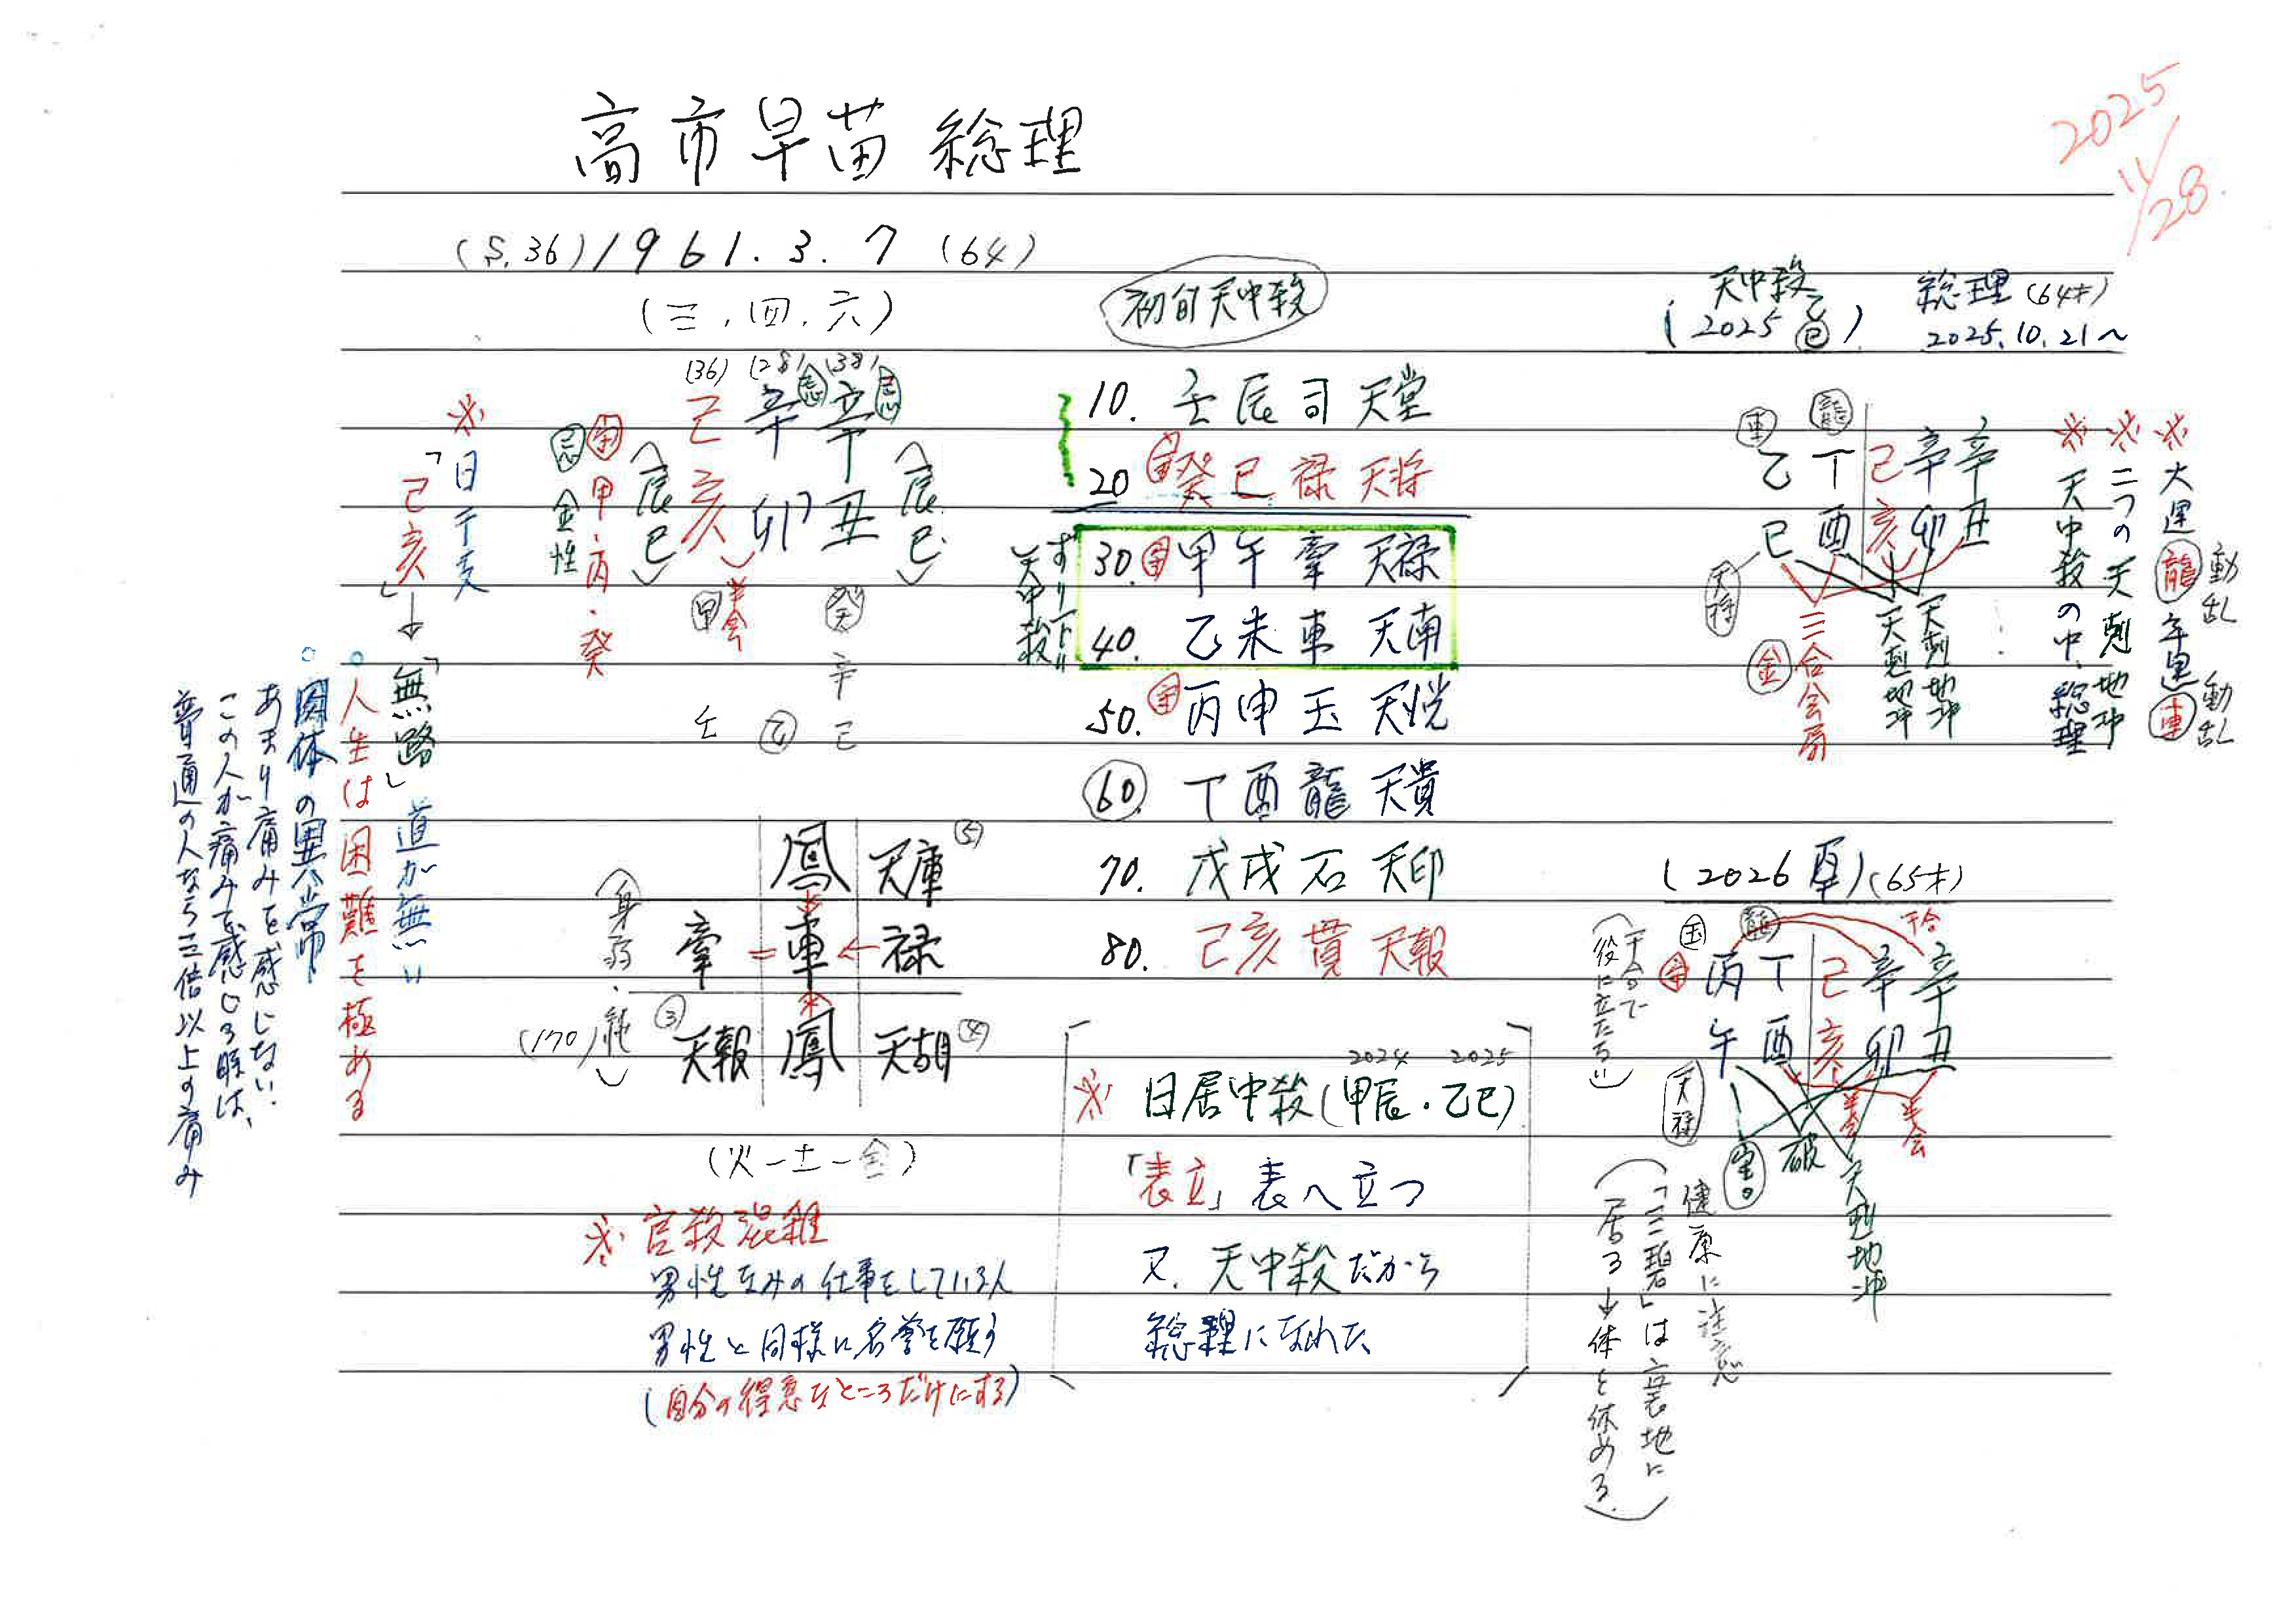 高市早苗 総理
2025
11/28
(S.36) 1961.3.7 (64)
(三.四.六)
初旬天中殺
天中殺
(2025 乙巳)
総理 (64才)
2025.10.21〜
(36) (28) (38)
己 辛 忌 辛 忌
亥 卯 丑
(辰巳)
(辰巳)
半会
甲
癸
辛
壬 乙 己
守 甲.丙.癸
忌 金性
※日干支
「己亥」→
「無路」道が無い
○人生は困難を極める
○肉体の異常
あまり痛みを感じない.
この人が痛みを感じる時は、
普通の人なら三倍以上の痛み
10. 壬辰司 天堂
20 守 癸巳禄 天将
30. 守 甲午牽 天禄
40. 乙未車 天南
ずり下り
天中殺
50. 守 丙申玉 天恍
60. 丁酉龍 天貴
70. 戊戌石 天印
80. 己亥貫 天報
車 龍
乙 丁 己 辛 辛
巳 酉 亥 卯 丑
天将
金 三合会局
天剋地冲
天剋地冲
※大運 龍 動乱 年運 車 動乱
※二つの天剋地冲
※天中殺の中、総理
鳳 天庫 ⑤
牽 = 車 ← 禄
③ 天報 鳳 天胡 ④
(身弱.純)
(170)
(火-土-金)
※官殺混雑
男性なみの仕事をしている人
男性と同様に名誉を願う
(自分の得意なところだけにする)
2024 2025
※日居中殺(甲辰.乙巳)
「表立」表へ立つ
又.天中殺だから
総理になれた
(2026 年) (65才)
玉 龍 干合
守 丙 丁 己 辛 辛
午 酉 亥 卯 丑
天禄
(干合で
役に立たない)
半会
半会
害
破
天剋地冲
健康に注意
(「三碧」は裏地に
居る→体を休める.)